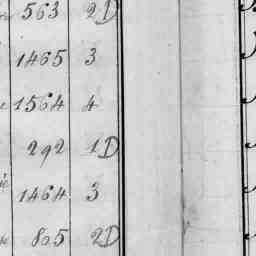 563 2D
1465 3
1564 4
292 1D
1464 3
805 2D